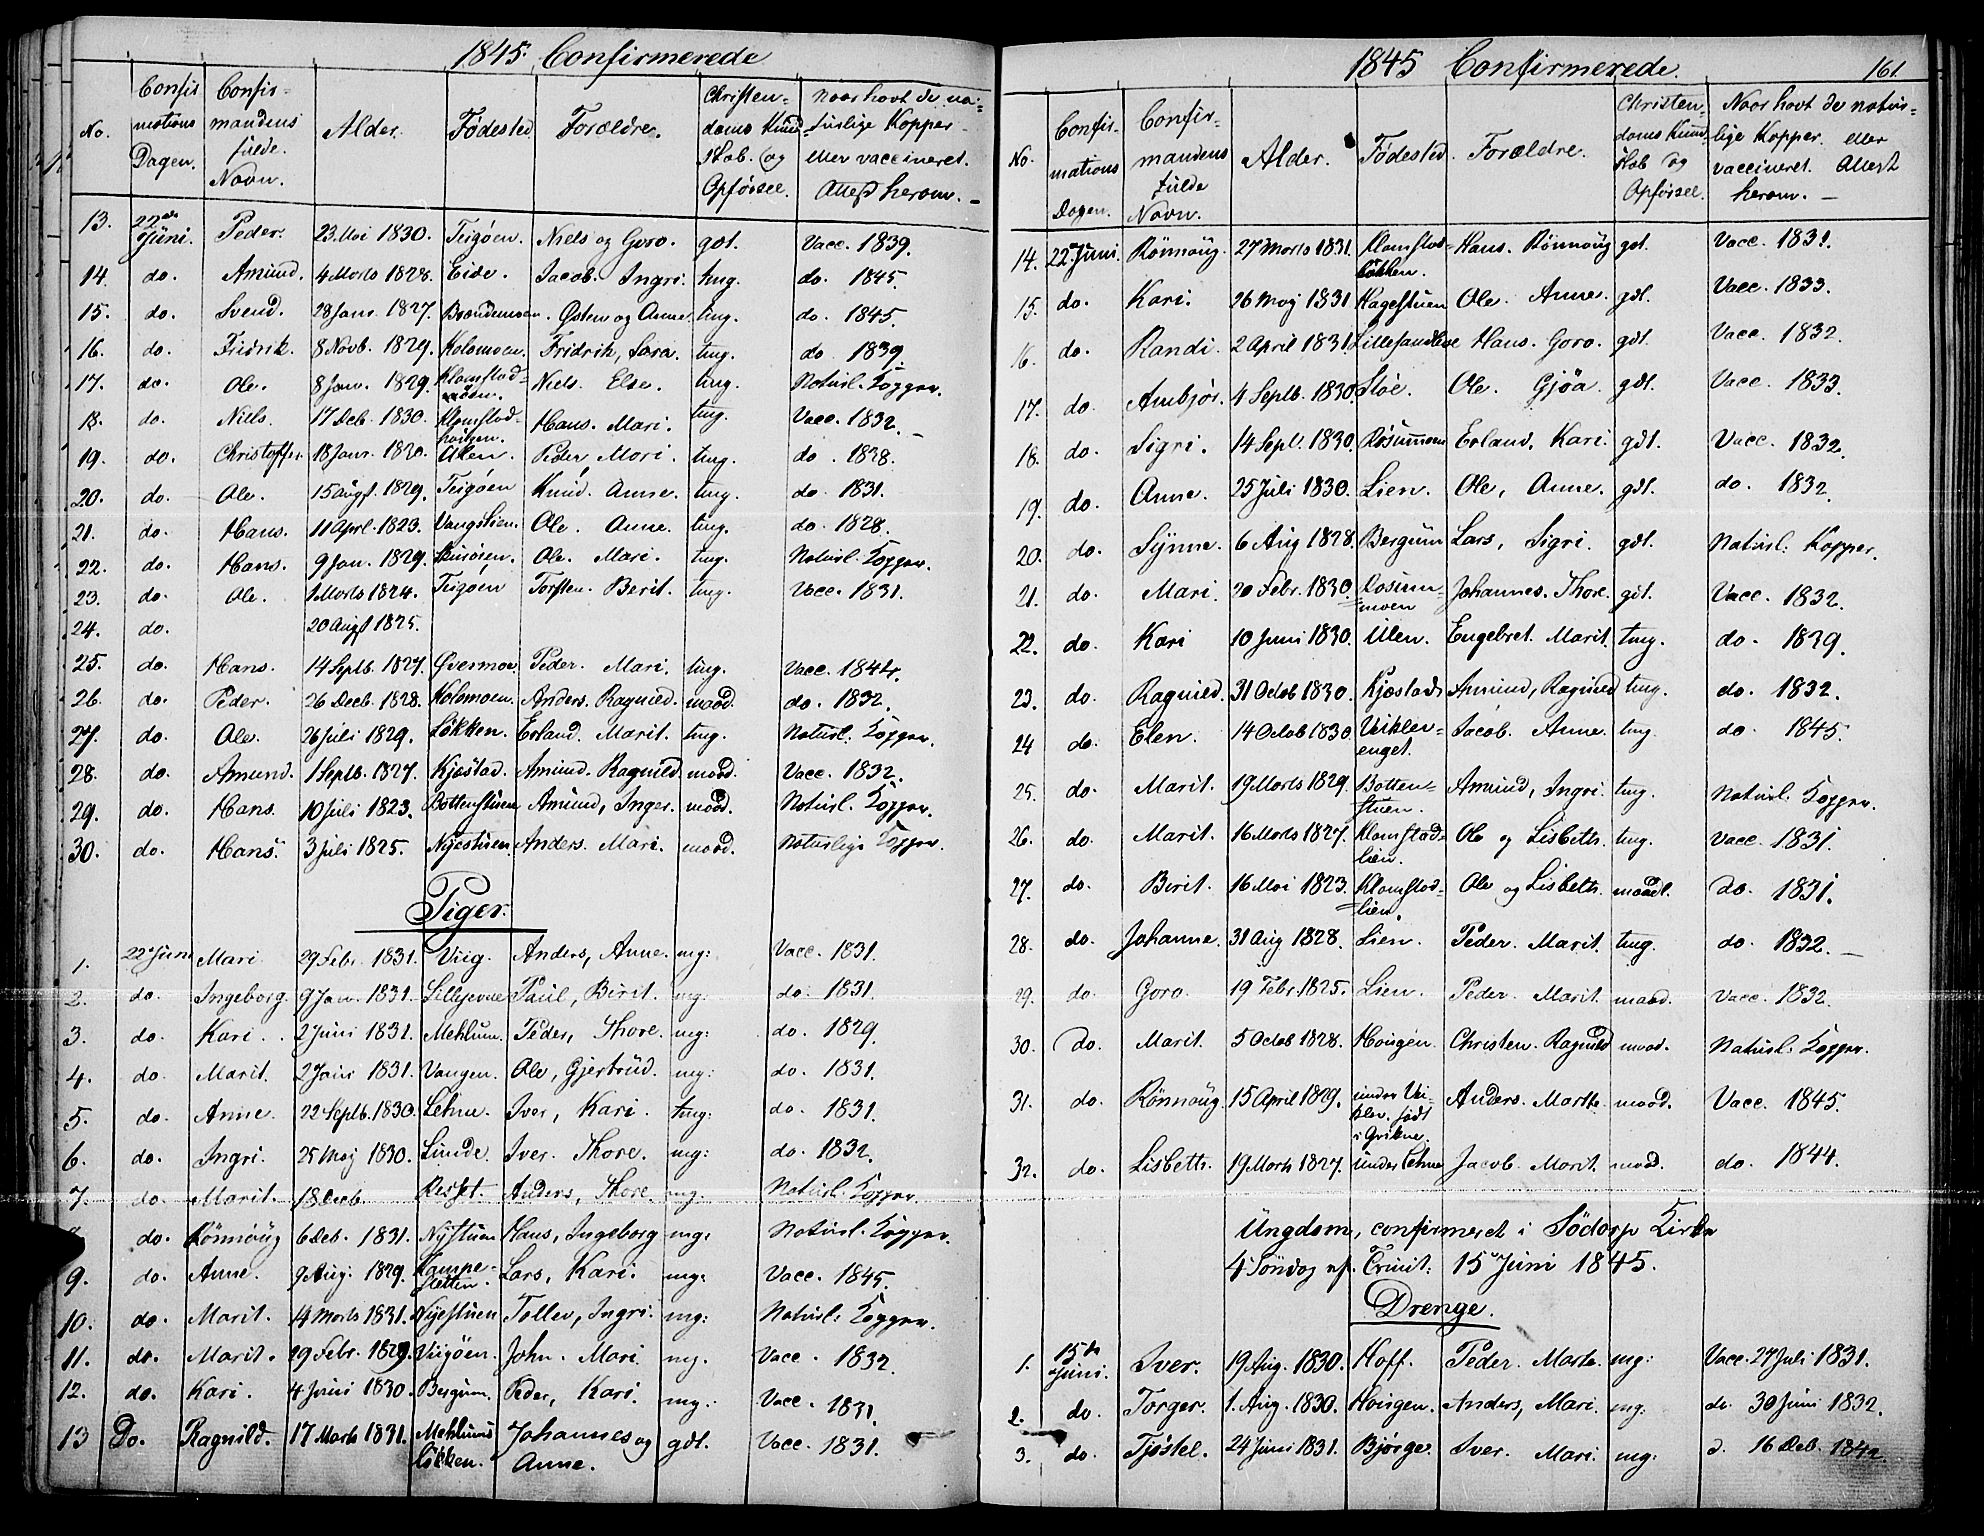 1845. Confirmerede
No. Confirmations Dagen. Confirmandens fulde Navn. Alder. Fødested. Forældre. Christendoms Kundskab og Opførsel. Naar havt de naturlige Kopper eller vaccineret. Attest herom. -
13. 22de Juni. Peder. 23 Mai 1830. Teigøen. Niels og Goro. got. Vacc. 1839.
14. do. Amund. 4 Marts 1828. Eide. Jacob. Ingri. tmg. do. 1845.
15. do. Svend. 28 Janr. 1827. Brandemoen. Østen og Anne. tmg. do. 1845.
16. do. Fridrik. 8 Novb. 1829. Kolomoen. Fridrik, Sara. tmg. do 1839.
17. do. Ole. 8 Janr. 1829. Klomstadmoen. Niels. Else. tmg. Naturl. Kopper.
18. do. Niels. 17 Decb. 1830. Klomstad- Hans. Mari. tmg. Vacc. 1832.
19. do. Christoffer. 18 Janr. 1830. Ulen. Peder, Mari. tmg. do. 1828.
20. do. Ole. 15 Augst. 1829. Teigøen Knud. Anne. tmg. do. 1831.
21. do. Hans. 11 Aprl. 1823. Vangslien. Ole. Anne. tmg. do. 1828.
22. do. Hans. 9 Jan. 1829. Ole. Mari. tmg. Naturl. Kopper.
23. do. Ole. 1 Marts 1824. Teigøen Torsten. Berit. tmg. Vacc. 1831.
24. do. 20 Augst 1825.
25. do. Hans. 14 Septb. 1827. Øvermoe. Peder. Mari. tmg. Vacc. 1844.
26. do. Peder. 26 Decb. 1828. Kolomoen. Anders. Ragnild. maad. do. 1832.
27. do. Ole. 26 Juli 1829. Løkken. Erland. Marit. tmg. Naturl: Kopper.
28. do. Amund. 1 Septb. 1827. Kjæstad. Amund. Ragnild maad. Vacc. 1832.
29. do. Hans. 10 Juli 1823. Bottenstuen Amund, Inger. maad. Naturl. Kopper.
30. do. Hans. 3 Juli 1825. Nyestuen. Anders. Mari. maad. Naturlige Kopper.
Piger.
1. 22de Juni Mari 29 Febr. 1831. Viig. Anders, Anne. mg: Vacc. 1831.
2. do. Ingeborg. 9 Jan. 1831. Lillejevne Paul, Birit. mg: do. 1831.
3. do. Kari. 2 Juni 1831. Mehlum. Peder, Thore. mg: do. 1829.
4. do. Marit. 2 Janr 1831. Vangen. Ole, Gjertrud. mg: do. 1831.
5. do. Anne. 22 Septb. 1830. Lehne. Iver, Kari. tmg: do. 1831.
6. do. Ingri. 25 Maj 1830. Linde. Iver. Thore. mg: do. 1832.
7. do. Marit. 18 Decb. Risset. Anders, Thore. mg. Naturl. Kopper.
do. Rønnoug 6 Deb. 1831. Nystuen Hans, Ingeborg mg: Naturl. Kopper.
9. do. Anne. 9 Aug. 1829. Kampesletten. Lars, Kari. mg: Vacc. 1845.
10. do. Marit. 14 Marts 1831. Nyestuen Tollev, Ingri. mg: Naturl: Kopper.
11. do. Marit. 19 Febr. 1829. Viigøen. John. Mari. mg. Vacc. 1832.
12. do. Kari. 4 Juni 1830. Bergum. Peder, Kari. mg. Vacc. 1831.
13 Do. Ragnild. 17 Marts 1831. Mehlums løkken. Johannes og Anne. gdt. Vacc. 1831.
1845 Confirmerede. 161.
No. Confirmations Dagen. Confirmandens fulde Navn. Alder. Fødested. Forældre. Christendoms Kundskab og Opførsel. Naar havt de naturlige Kopper. eller vaccineret. Attest herom. -
14. 22de Juni. Rønnoug. 27 Marts 1831. Klomstadløkken. Hans. Rønnoug got. Vacc. 1831.
15. do. Kari. 26 Maj 1831 Hagestuen Ole. Anne. gdt. Vacc. 1833.
16. do. Randi. 2 April 1831. Hans. Goro. gdt. Vacc. 1832.
17. do. Ambjør. 4 Septb. 1830. Sløe. Ole. Gjøa. gdt. Vacc. 1833.
18. do. Sigri. 14 Sept. 1830. Rosummoen Erland, Kari. gdt. Vacc. 1832.
19. do. Anne. 25 Juli 1830. Lien. Ole, Anne. gdt. do. 1832.
20. do. Synne. 6 Aug 1828. Bergum Lars, Sigri. gdt. Naturl: Kopper.
21. do. Mari. 20 Febr. 1830. Rosummoen Johannes. Thore. gdt. Vacc. 1832.
22. do. Kari 10 Juni 1830. Ulen. Engebret. Marit. tmg. do. 1829.
23. do. Ragnild. 31 Octob 1830. Kjæstad Amund, Ragnild tmg. do. 1832.
24 do. Elen. 14 Octob 1830 Viklevenget. Jacob. Anne. tmg. do. 1845.
25. do. Marit. 19 Marts 1829. Bottenstuen. Amund, Ingri. tmg. Naturl. Kopper.
26. do. Marit. 16 Marts 1827. Klomstadlien. Ole og Lisbeth. tmg. Vacc. 1831.
27. do. Birit. 16 Mai 1823. Klomstadlien. Ole og Lisbeth. maadl. do. 1831.
28. do. Johanne. 31 Aug 1828. Lien. Peder. Marit. tmg. do. 1832. -
29. do. Goro. 19 Febr. 1825. Lien. Peder. Marit. maad. Vacc. 1832.
30. do. Marit. 5 Octob 1828. Hougen. Christen. Ragnild maad. Naturl: Kopper.
31. do. Rønnoug 15 April 1829. under Viklev. født i Qvikne. Anders. Marthe. maad. Vacc. 1845.
32. do. Lisbeth. 19 Marts 1827. under Lehne Jacob. Marit. maad. do. 1844.
Ungdom, confirmeret i Sødorp Kirke
4 Søndag ef. Trinit: 15de Juni 1845.
Drenge.
1. 15de Juni. Iver. 19 Aug. 1830. Hoff. Peder. Marte. mg: Vacc. 27 Juli 1831.
2. do. Torger. 1. Aug. 1830. Hougen. Anders, Mari. mg: do. 30 Juni 1832.
3. do. Tjøstel. 24 Juni 1831. Bjørge. Iver. Mari. mg: d. 16 Deb. 1842.